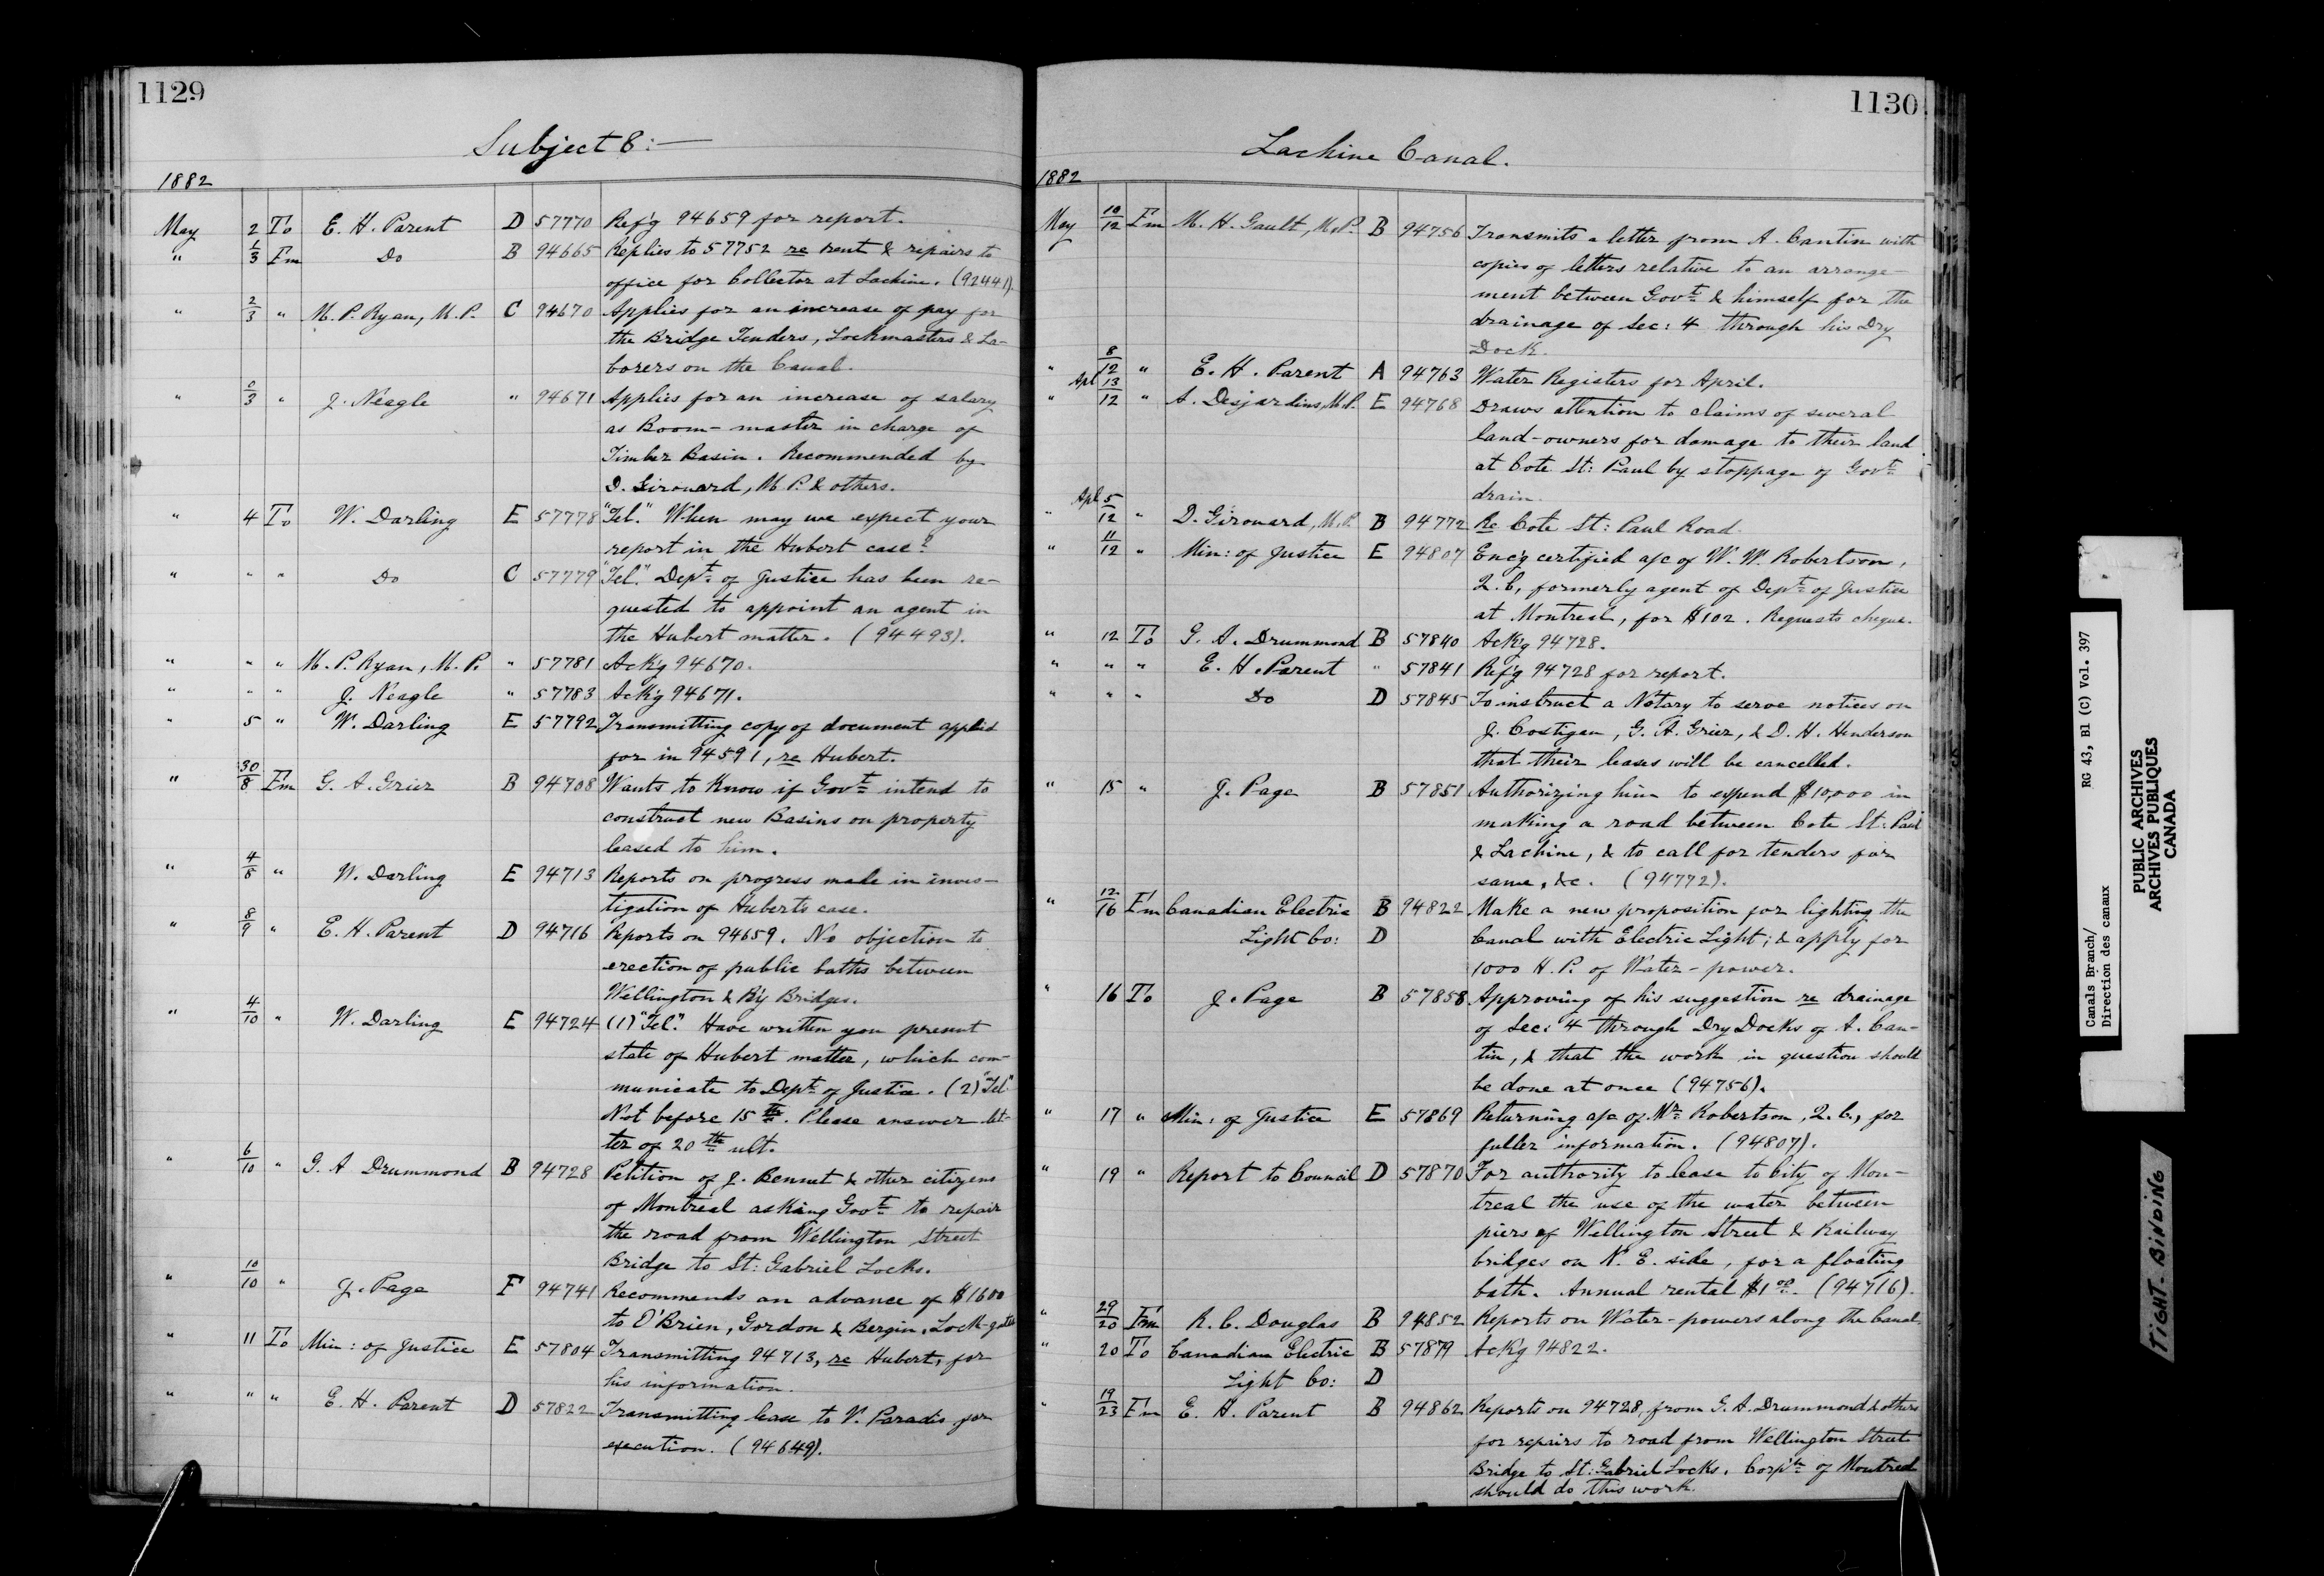 1129
Subject 8:—
1882
May 2 To E. H. Parent D 57770 Ref'g 94659 for report.
" 1/3 F'm Do B 94665 Replies to 57752 re rent & repairs to
office for Collector at Lachine. (92441).
" 2/3 " M. P. Ryan, M. P. C 94670 Applies for an increase of pay for
the Bridge Tenders, Lockmasters & La-
borers on the Canal.
" 0/3 " J. Neagle " 94671 Applies for an increase of salary
as Boom-master in charge of
Timber Basin. Recommended by
D. Girouard, M. P. & others.
" 4 To W. Darling E 57778 "Tel." When may we expect your
report in the Hubert case?
" " " Do C 57779 "Tel." Dept. of Justice has been re-
quested to appoint an agent in
the Hubert matter. (94493).
" " " M. P. Ryan, M. P. " 57781 Ack'g 94670.
" " " J. Neagle " 57783 Ack'g 94671.
" 5 " W. Darling E 57792 Transmitting copy of document applied
for in 94591, re Hubert.
" 30/8 F'm G. A. Grier B 94708 Wants to know if Govt. intend to
construct new Basins on property
leased to him.
" 4/8 " W. Darling E 94713 Reports on progress made in inves-
tigation of Hubert's case.
" 8/9 " E. H. Parent D 94716 Reports on 94659. No objection to
erection of public baths between
Wellington & R'y Bridges.
" 4/10 " W. Darling E 94724 (1) "Tel." Have written you present
state of Hubert matter, which com-
municate to Dept. of Justice. (2) "Tel"
Not before 15th. Please answer let-
ter of 20th ult.
" 6/10 " G. A Drummond B 94728 Petition of J. Bennet & other citizens
of Montreal asking Govt. to repair
the road from Wellington Street
Bridge to St: Gabriel Locks.
" 10/10 " J. Page F 94741 Recommends an advance of $1600
to O'Brien, Gordon & Bergin, Lock-gates
" 11 To Min: of Justice E 57804 Transmitting 94713, re Hubert, for
his information.
" " " E. H. Parent D 57822 Transmitting lease to V. Paradis for
execution. (94649).
1130
Lachine Canal.
1882
May 10/12 F'm M. H. Gault, M.P. B 94756 Transmits a letter from A. Cantin with
copies of letters relative to an arrange-
ment between Govt. & himself for the
drainage of Sec: 4 through his Dry
Dock.
" 8/12 " E. H. Parent A 94763 Water Registers for April.
" Apl 13/12 " A. Desjardins, M.P. E 94768 Draws attention to claims of several
land-owners for damage to their land
at Cote St: Paul by stoppage of Govt.
drain.
" Apl 5/12 " D. Girouard, M.P. B 94772 Re Cote St: Paul Road
" 11/12 " Min: of Justice E 94807 Enc'g certified a/c of W. W. Robertson,
Q. C, formerly agent of Dept. of Justice
at Montreal, for $102. Requests cheque.
" 12 To G. A. Drummond B 57840 Ack'g 94728.
" " " E. H. Parent " 57841 Ref'g 94728 for report.
" " " Do D 57845 To instruct a Notary to serve notices on
J. Costigan, G. A. Grier, & D. H. Henderson
that their leases will be cancelled.
" 15 " J. Page B 57851 Authorizing him to expend $10,000 in
making a road between Cote St: Paul
& Lachine, & to call for tenders for
same, &c. (94772).
" 12/16 F'm Canadian Electric B 94822 Make a new proposition for lighting the
Light Co: D Canal with Electric Light; & apply for
1000 H. P. of Water-power.
" 16 To J. Page B 57858 Approving of his suggestion re drainage
of Sec: 4 through Dry Docks of A. Can-
tin, & that the work in question should
be done at once (94756).
" 17 " Min: of Justice E 57869 Returning a/c of Mr. Robertson, Q. C., for
fuller information. (94807).
" 19 " Report to Council D 57870 For authority to lease to City of Mon-
treal the use of the water between
piers of Wellington Street & Railway
bridges on N. E. side, for a floating
bath. Annual rental $1.00. (94716).
" 29/20 F'm R. C. Douglas B 94852 Reports on Water-powers along the Canal
" 20 To Canadian Electric B 57879 Ack'g 94822.
Light Co: D
" 19/23 F'm E. H. Parent B 94862 Reports on 94728, from G. A. Drummond & others
for repairs to road from Wellington Street
Bridge to St: Gabriel Locks. Corp'tn of Montreal
should do this work.
Canals Branch/ RG 43, B1 (C) Vol. 397
Direction des canaux
PUBLIC ARCHIVES
ARCHIVES PUBLIQUES
CANADA
TIGHT BINDING